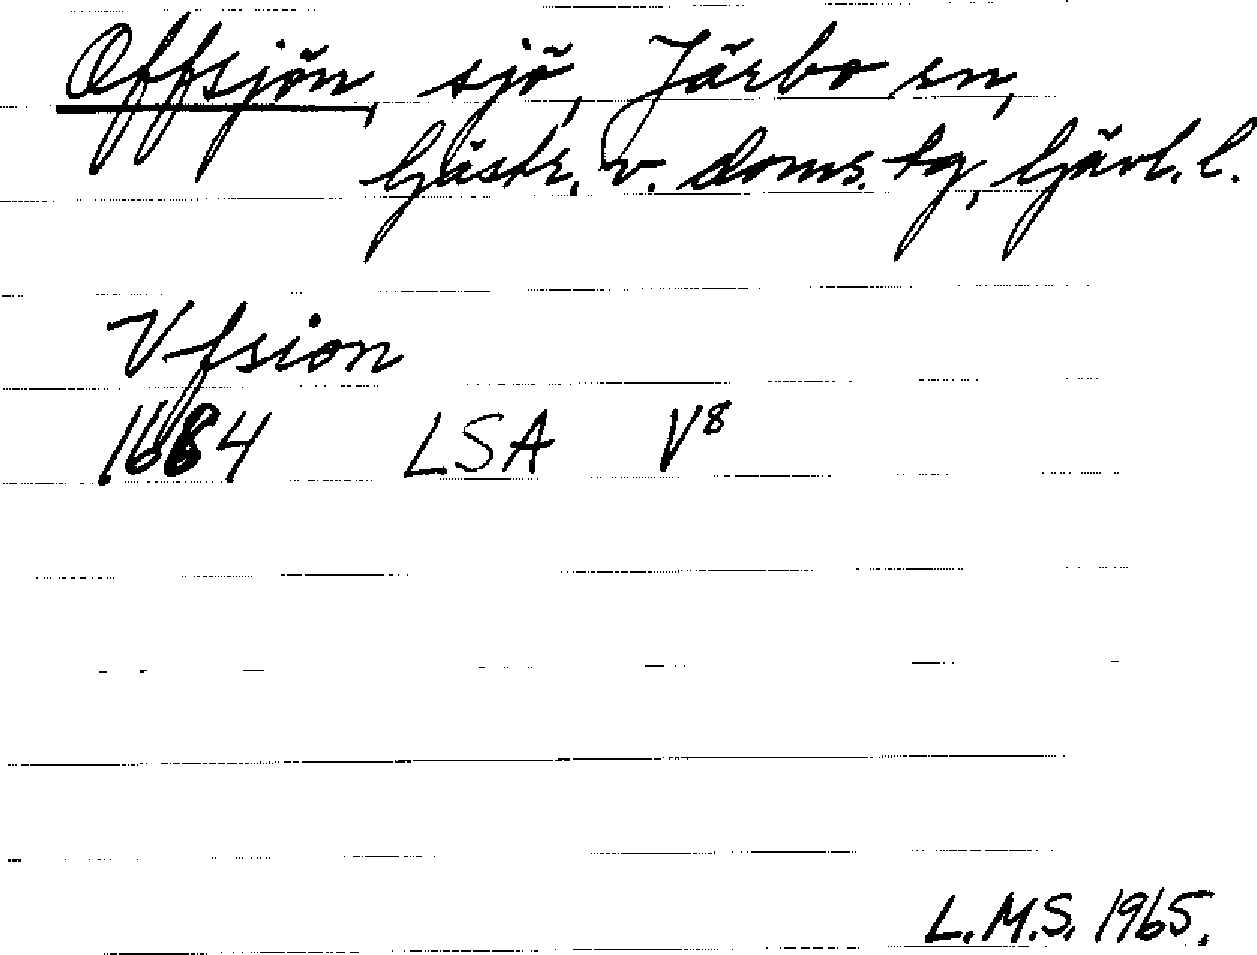 Offsjön, sjö, Järbo sn,
Gästr. v. doms. tg, Gävl. l.
Vfsion
1684 LSA V8
L.M.S. 1965.